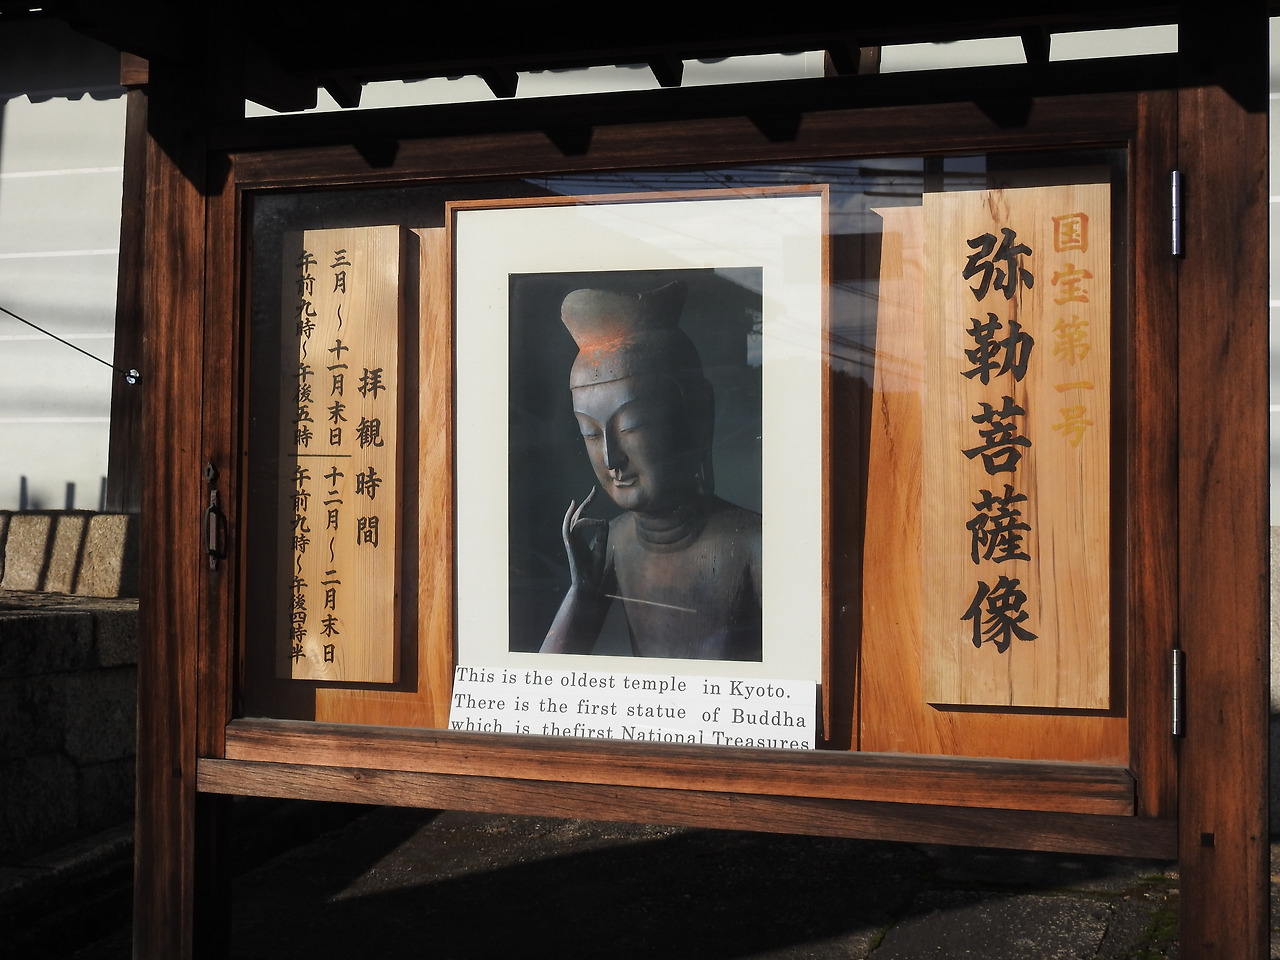 国宝第一号
弥勒菩薩像
拝観時間
三月〜十一月末日
午前九時〜午後五時
十二月〜二月末日
午前九時〜午後四時半
This is the oldest temple in Kyoto.
There is the first statue of Buddha
which is thefirst National Treasures